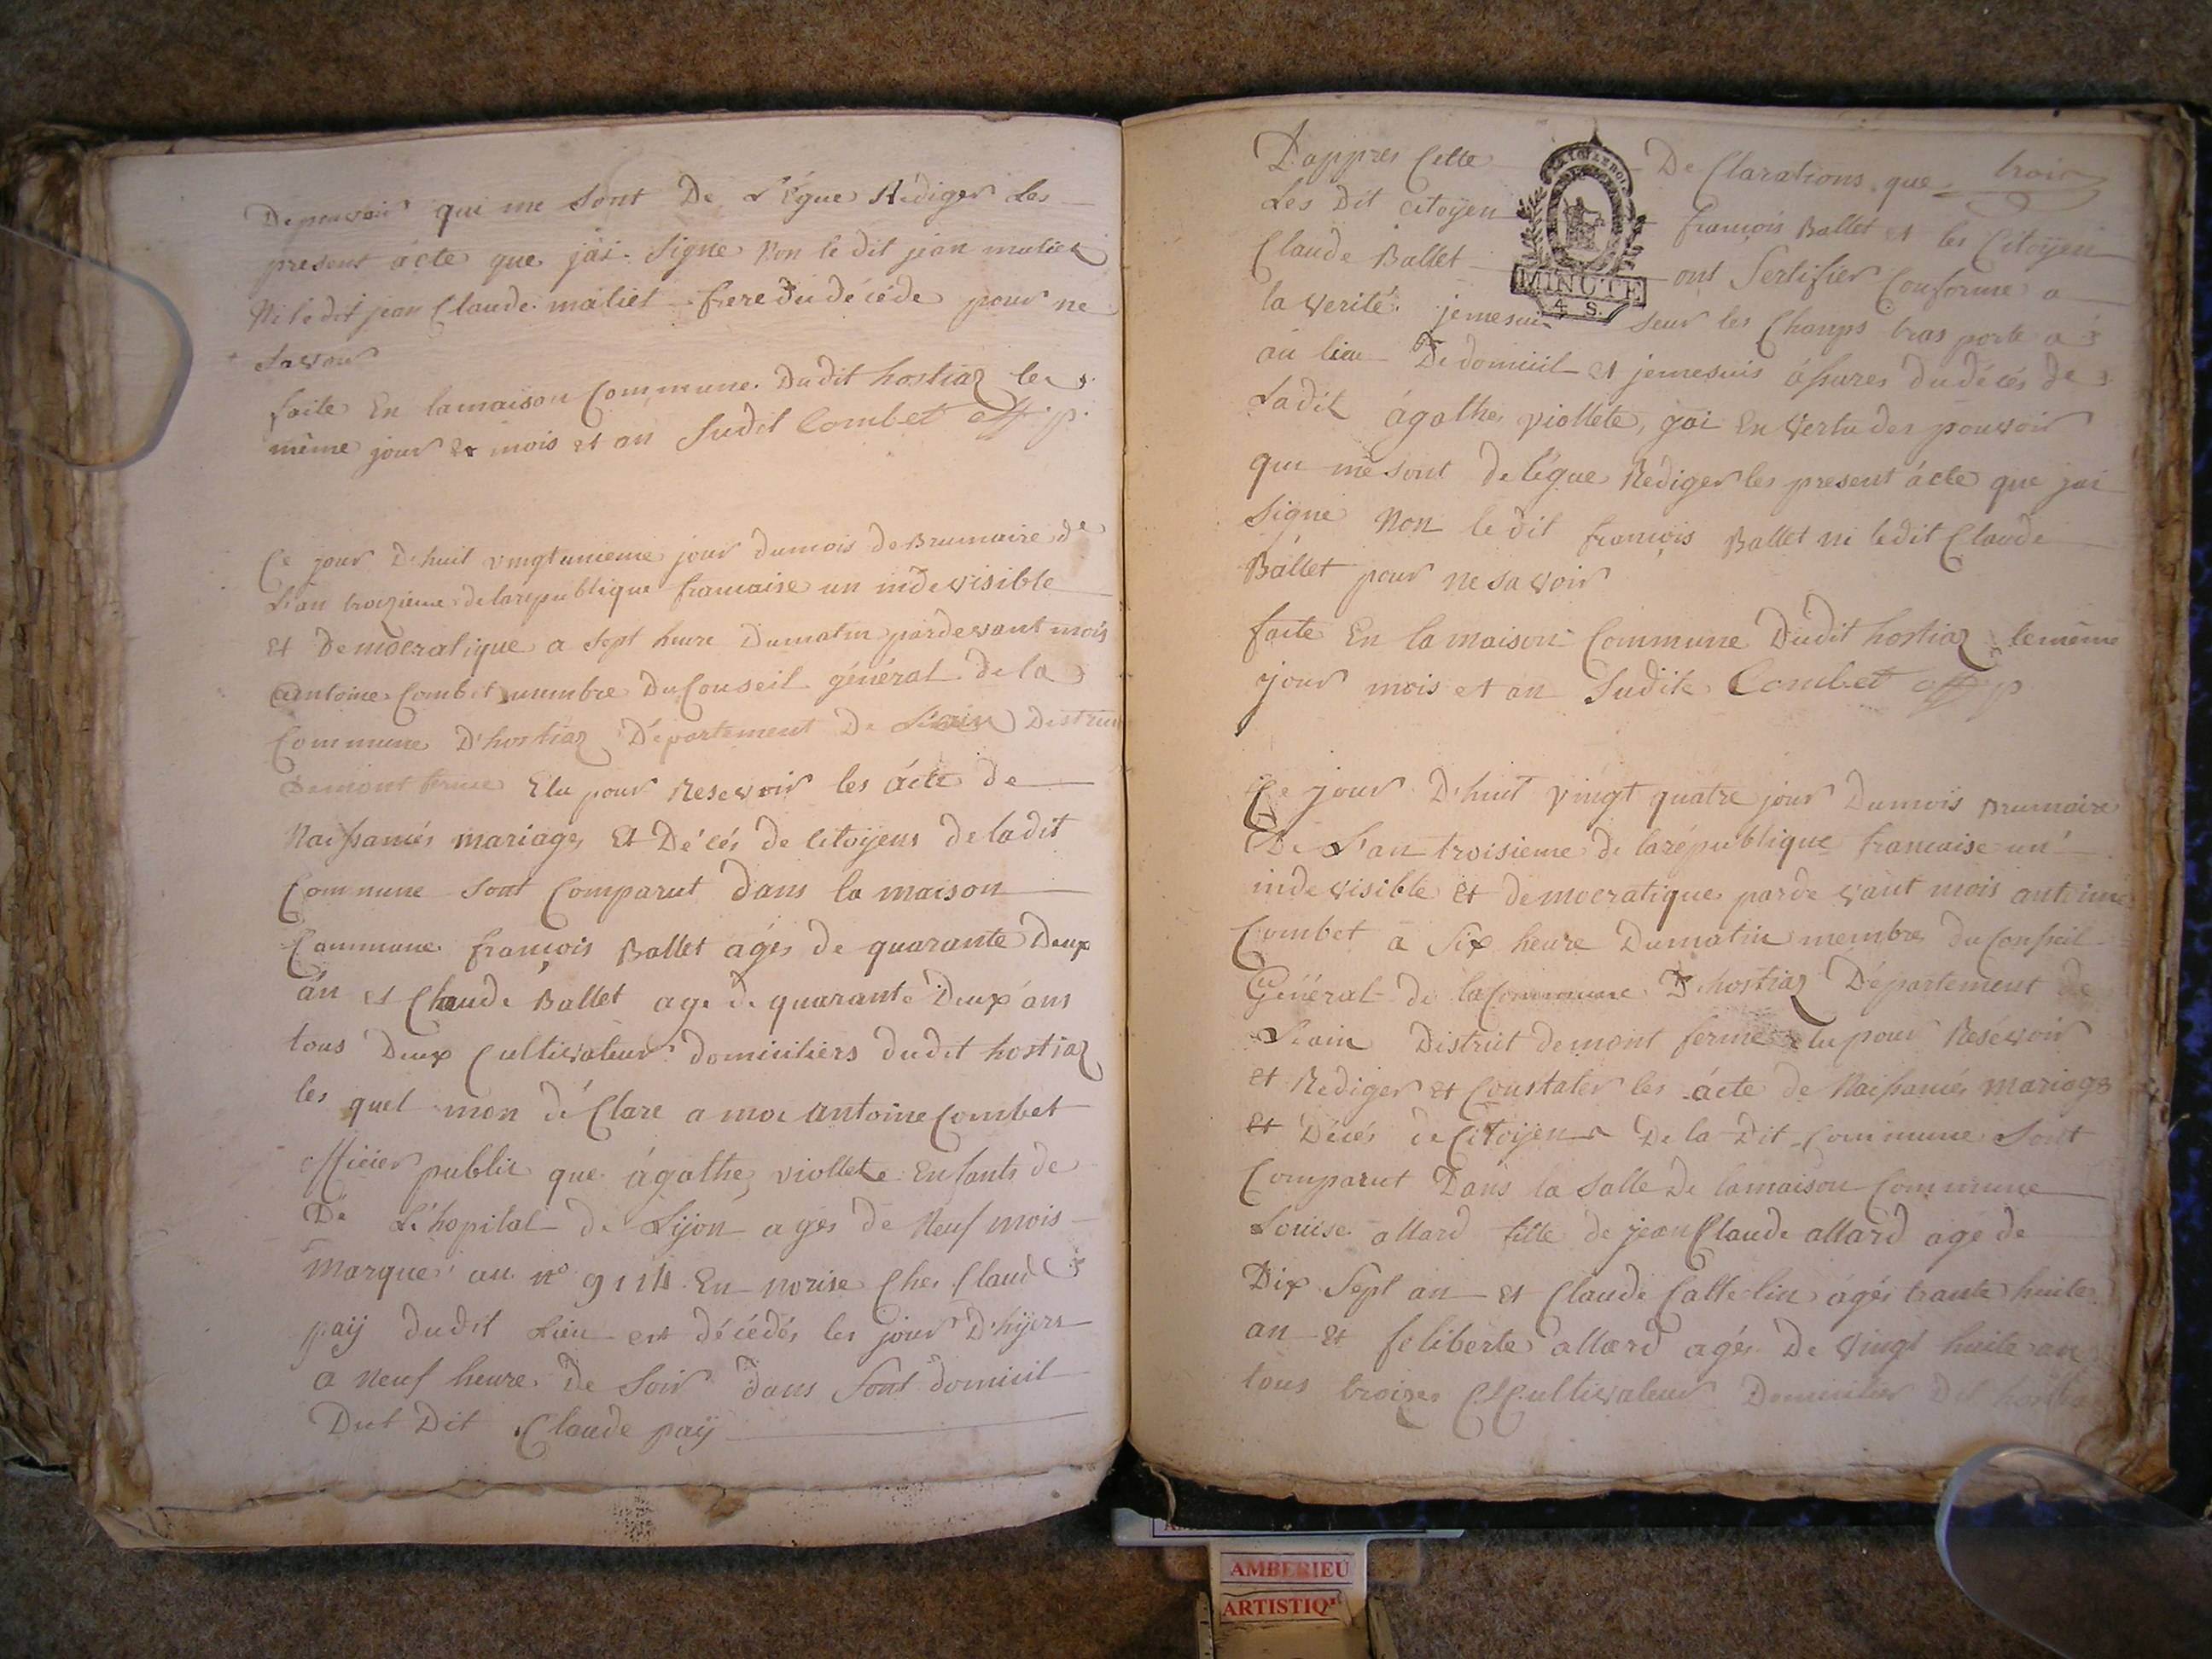 Depouvoir qui me sont De L'Egue Rédiger les
present ácte que jai Signe Non le dit jean maliet
Ni le dit jean Claude maliet frere du décéde pour ne
Savoir
faite En lamaison Commune Dudit hostiaz le
même jour et mois et an Sudit Combet off. p.
Ce jour D'huit vingtunieme jour dumois de Brumaire de
L'an troizieme delarepublique francaise un indevisible
Et Democratique a Sept heure Dumatin pardevant mois
Antoine Combet membre Du Conseil général de la
Commune D'hostiaz Département De L'ain District
Demont ferme Elu pour Resevoir les ácte de
Naissancés mariages Et Décés de Citoyens de ladit
Commune Sont Comparut dans la maison
Commune françois Ballet agés de quarante Deux
án et Claude Ballet age de quarante Deux ans
tous Deux Cultivateur domiciliers dudit hostiaz
les quel mon déClare a moi antoine Combet
officier public que ágathe viollete Enfants de
De L'hopital de Lijon ages de Neuf mois
marque au n° 9114 En norise Ches Claude
paÿ dudit Lieu est décédés les jour D'hÿers
a Neuf heure De Soir dans Sont domicil
Dut Dit Claude paÿ
Dappres Cette De Clarations que trois
Les Dit citoÿen françois Ballet et les Citoÿen
Claude Ballet ont Sertifier Conforme a
MINUTE
4 S.
la verité jemesuis seur les Champs tras porte a
au lieu De domicil et jemesuis ássures dudécés de
Ladit ágathe viollete, gai En vertu des pouvoir
qui me sont deléque Rediger les present ácte que jai
Signe Non ledit françois Ballet ni ledit Claude
Ballet pour ne savoir
faite En la maison Commune Dudit hostiaz le même
jour mois et an Sudite Combet off p
Ce jour D'huit vingt quatre jour Dumois Brumaire
De L'an troisieme de larépublique francaise un
indevisible et democratique parde vant mois antoine
Combet a Six heure Dumatin membre du Conseil
Général de la Commune D'hostiaz Département de
L'ain District demont ferme elu pour Resevoir
et Rediger et Constater les ácte de Naissancés mariages
Et Décés de Citoÿen De la Dit Commune Sont
Comparut Dans la Salle De lamaison Commune
Louise allard fille de jean Claude allard age de
Dix Sept an et Claude Cattelin ágés trante huite
an et feliberte allard agés De vingt huite an
tous troizes Cultivateur Domicilier Dit hostiaz
AMBERIEU
ARTISTIQ